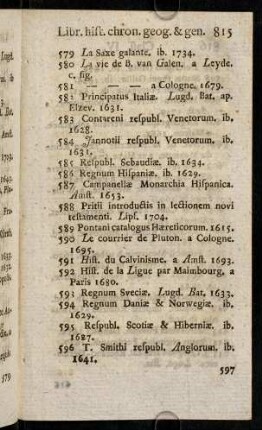 Libr. hist. chron. geog. & gen. 815
579 La Saxe galante. ib. 1734.
580 La vie de B. van Galen. a Leyde.
c. fig.
581 — — — a Cologne. 1679.
582 Principatus Italiæ. Lugd. Bat. ap.
Elzev. 1631.
583 Contareni respubl. Venetorum. ib.
1628.
584 Jannotii respubl. Venetorum. ib.
1631.
585 Respubl. Sebaudiæ. ib. 1634.
586 Regnum Hispaniæ. ib. 1629.
587 Campanellæ Monarchia Hispanica.
Amst. 1653.
588 Pritii introductis in lectionem novi
testamenti. Lips. 1704.
589 Pontani catalogus Hæreticorum. 1615.
590 Le courrier de Pluton. a Cologne.
1695.
591 Hist. du Calvinisme. a Amst. 1693.
592 Hist. de la Ligue par Maimbourg, a
Paris 1680.
593 Regnum Sveciæ. Lugd. Bat. 1633.
594 Regnum Daniæ & Norwegiæ. ib.
1629.
595 Respubl. Scotiæ & Hiberniæ. ib.
1627.
596 T. Smithi respubl. Anglorum. ib.
1641.
597